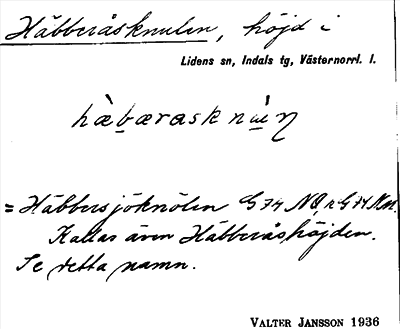 Häbberåsknulen, höjd i
Lidens sn, Indals tg, Västernorrl. l.
hàbærask nu̇̀ŋ
= Häbbersjöknölen G 74 NQ, n G 74 Kn.
Kallas även Häbberåshöjden.
Se detta namn.
VALTER JANSSON 1936